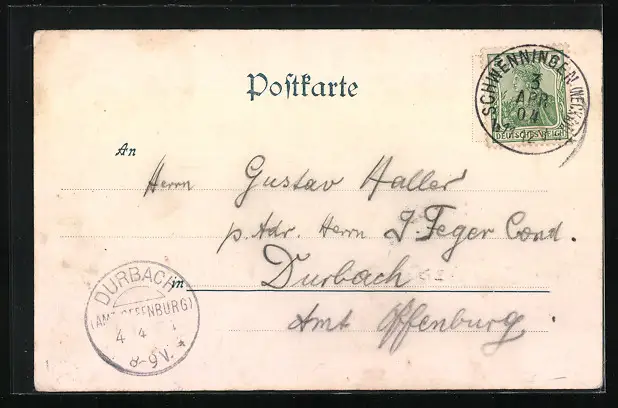 Postkarte
SCHWENNINGEN (NECKAR)
3
APR
04
DEUTSCHES REICH
An
Herrn Gustav Haller
p. Adr. Herrn J. Feger Cond.
in Durbach
Amt Offenburg
DURBACH
(AMT OFFENBURG)
4 4
8-9V.